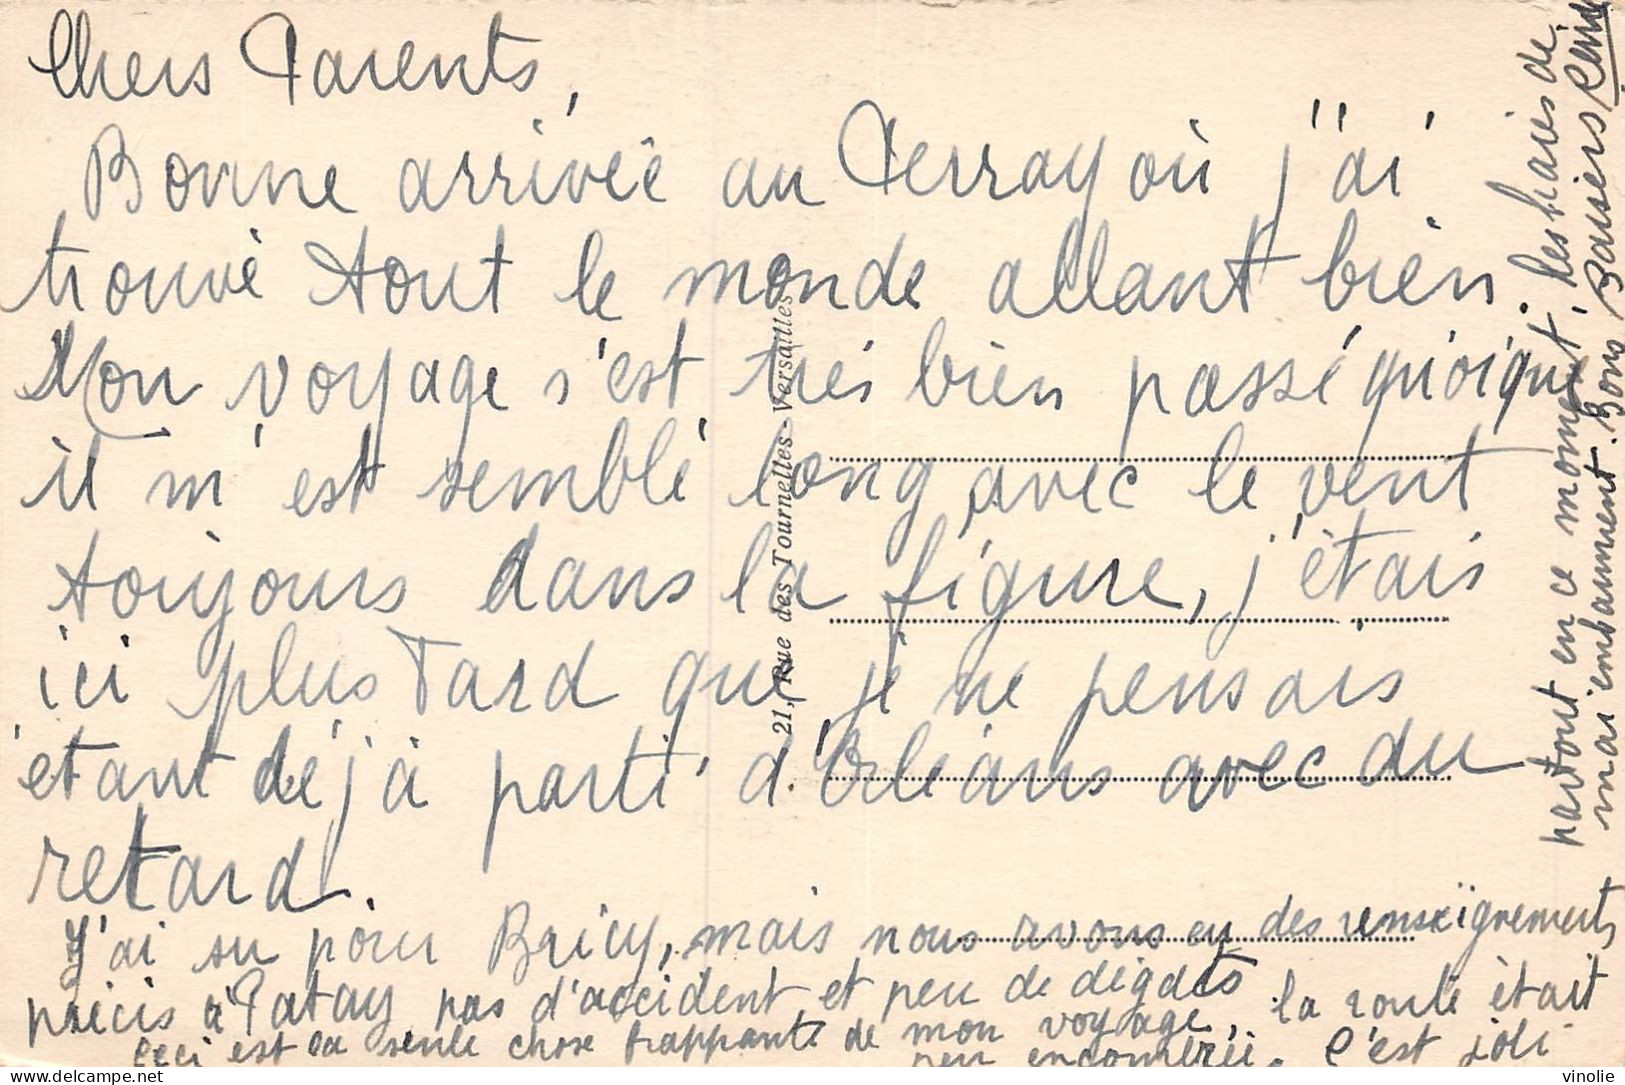 Chers Parents,
Bonne arrivée au Perray où j'ai
trouvé tout le monde allant bien.
Mon voyage s'est très bien passé quoique
il m'est semblé long avec le vent
toujours dans la figure, j'étais
ici plus tard que je ne pensais
étant déjà parti d'Orléans avec du
retard.
J'ai su pour Bricy, mais nous avons eu des renseignements
précis à Patay pas d'accident et peu de dégâts
Ceci est la seule chose frappante de mon voyage, la route était
peu encombrée. C'est joli
partout en ce moment, les haies de
mai embaument. Bons Baisers
21, Rue des Tournelles - Versailles
vinolie